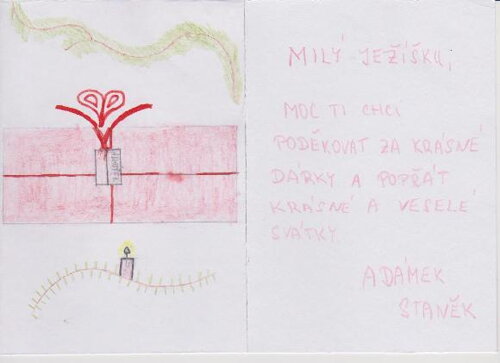 MILÝ JEŽÍŠKU,
MOC TI CHCI
PODĚKOVAT ZA KRÁSNÉ
DÁRKY A POPŘÁT
KRÁSNÉ A VESELÉ
SVÁTKY
ADÁMEK
STANĚK